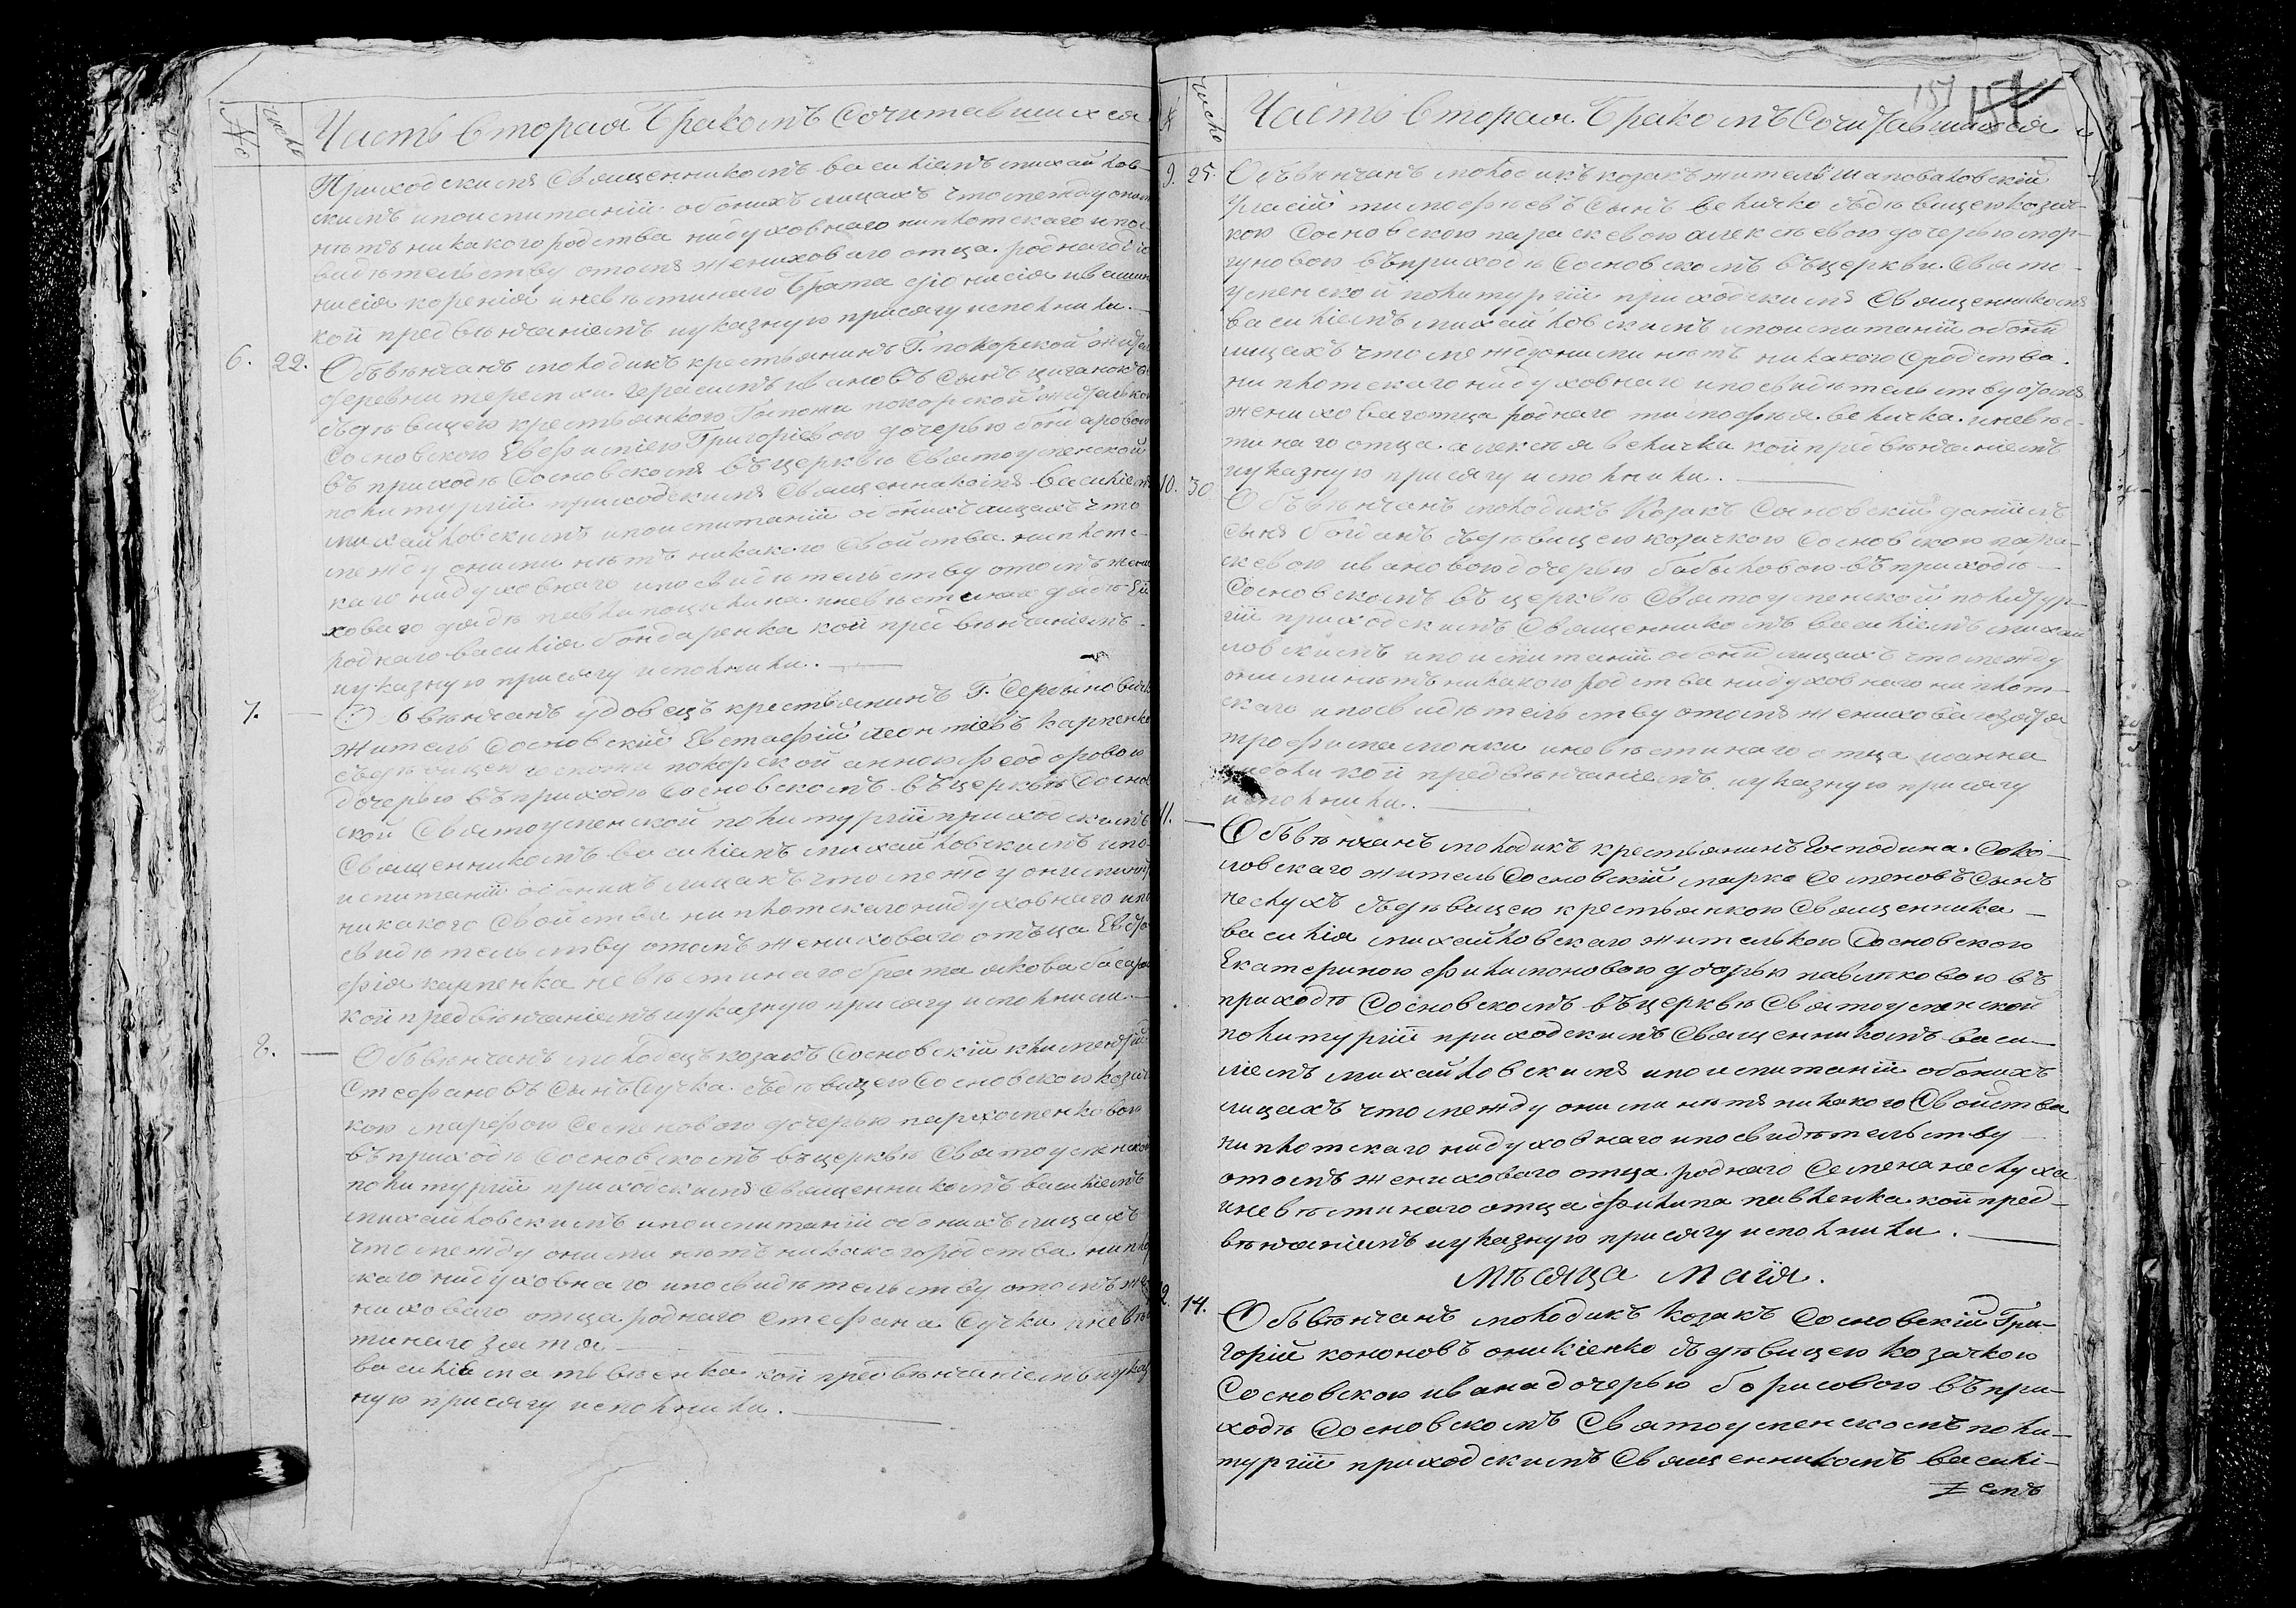 № число Часть вторая Бракомъ Сочитавшихся
Приходскимъ Священникомъ василіемъ михайлов-
скимъ и поиспитаніи обоихъ лицахъ что между оними
нѣтъ никакого родства нидуховнаго ниплотскаго и по с-
видѣтельству отомъ жениховаго отца роднаго
нисія коренія и невѣстинаго брата
кой предвѣнчаніемъ иуказную присягу исполнили.
6. 22. Обвѣнчанъ молодикъ крестьянинъ Г. покорской
деревни герасимъ ивановъ сынъ циганокъ
съдѣвицею крестьянкою Госпожи покорской жителькою
Сосновскою Евфиміею Григоріевою дочерью
въ приходѣ Сосновскомъ въ церквѣ Святоуспенской
политургіи приходскимъ Священникомъ василіемъ
михайловскимъ и поиспитаніи обоихъ лицахъ что
между оними нѣтъ никакого Свойства ниплотс-
каго нидуховнаго и посвидѣтельству отомъ жени-
ховаго дядѣ павла и невѣстинаго дядѣ
роднаго василія бондаренка кой предвѣнчаніемъ
иуказную присягу исполнили.
7. — Обвѣнчанъ удовецъ крестьянинъ Г.
житель Сосновскій Евстафій леонтіевъ карпенко
съдѣвицею госпожи покорской анною феодоровою
дочерью въ приходѣ Сосновскомъ въ церквѣ Соснов
ской Святоуспенской политургіи приходскимъ
Священникомъ василіемъ михайловскимъ и по-
испитаніи обоихъ лицахъ что между оними нѣтъ
никакого Свойства ниплотскаго нидуховнаго и по
свидѣтельству отомъ жениховаго отъца Евста
фія карпенка невѣстинаго брата якова
кой предвѣнчаніемъ иуказную присягу исполнили.
8. — Обвѣнчанъ молодецъ козакъ Сосновскій климентій
Стефановъ Сынъ Сучка съдѣвицею Сосновскою козач
кою марфою Семеновою дочерью пархоменковою
въ приходѣ Сосновскомъ въ церквѣ Святоуспенской
политургіи приходскимъ Священникомъ василіемъ
михайловскимъ и поиспитаніи обоихъ лицахъ
что между оними нѣтъ никакого родства ниплот
скаго нидуховнаго и посвидѣтельству отомъ же
ниховаго отца роднаго Стефана Сучки и невѣс
тинаго зятя
василія матвѣенка кой предвѣнчаніемъ иуказ
ную присягу исполнили.
157
№ число Часть вторая Бракомъ Сочитавшихся
9. 25. Обвѣнчанъ молодикъ козакъ житель шаповаловскій
тимофѣевъ Сынъ величко съдѣвицею козач-
кою Сосновскою параскевою алексѣевою дочерью мор-
гуновою въ приходѣ Сосновскомъ въ церкви Свято-
успенской политургіи приходскимъ Священникомъ
василіемъ михайловскимъ и поиспитаніи обоихъ
лицахъ что между оними нѣтъ никакого Сродства
ниплотскаго нидуховнаго и посвидѣтельству отомъ
жениховаго отца роднаго тимофѣя величка и невѣс-
тинаго отца алексѣя величка кой предвѣнчаніемъ
иуказную присягу исполнили.
10. 30 Обвѣнчанъ молодикъ Козакъ Сосновскій даніилъ
сынъ богданъ съдѣвицею козачкою Сосновскою пара-
скевою ивановою дочерью въ приходѣ
Сосновскомъ въ церквѣ Святоуспенской политур-
гіи приходскимъ Священникомъ василіемъ михай
ловскимъ и поиспитаніи обоихъ лицахъ что между
оними нѣтъ никакого родства нидуховнаго ниплот-
скаго и посвидѣтельству отомъ жениховаго зятя
трофима и невѣстинаго отца иоанна
кой предвѣнчаніемъ иуказную присягу
исполнили.
11. — Обвѣнчанъ молодикъ крестьянинъ Господина Соко-
ловскаго житель Сосновскій марко Семеновъ Сынъ
неслухъ съдѣвицею крестьянкою Священника
василія михайловскаго жителькою Сосновскою
Екатериною филимоновою дочерью павленковою въ
приходѣ Сосновскомъ въ церквѣ Святоуспенской
политургіи приходскимъ Священникомъ васи-
ліемъ михайловскимъ и поиспитаніи обоихъ
лицахъ что между оними нѣтъ никакого Свойства
ниплотскаго нидуховнаго и посвидѣтельству
отомъ жениховаго отца роднаго Семена неслуха
и невѣстинаго отца филипа павленка кой пред-
вѣнчаніемъ иуказную присягу исполнили.
Мѣсяца Маія.
12. 14. Обвѣнчанъ молодикъ козакъ Сосновскій Гри-
горій кононовъ оникіенко съдѣвицею козачкою
Сосновскою ивана дочерью борисовою въ при-
ходѣ Сосновскомъ Святоуспенскомъ поли-
тургіи приходскимъ Священникомъ василі-
емъ